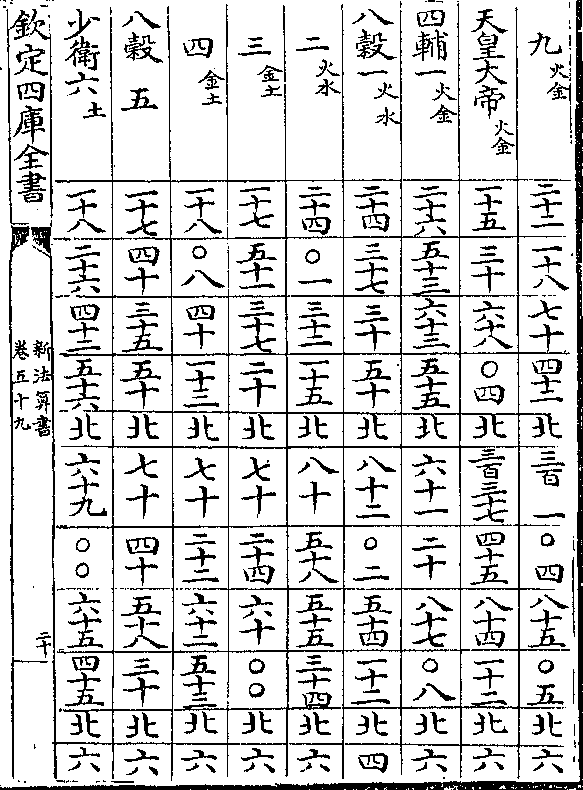 九 火金 二十二 一十八 七十 四十二 北 三百一 ○四 八十五 ○五 北 六
天皇大帝 火金 一十五 三十 六十八 ○四 北 三百三十七 四十五 八十四 一十二 北 六
四輔一 火金 二十六 五十三 六十三 五十五 北 六十一 二十 八十七 ○八 北 六
八榖一 火水 二十四 三十七 三十 五十 北 八十二 ○二 五十四 一十二 北 四
二 火水 二十四 ○一 三十二 一十五 北 八十 五十八 五十五 三十四 北 六
三 金土 一十七 五十一 三十七 二十 北 七十 二十四 六十 ○○ 北 六
四 金土 一十八 ○八 四十 一十三 北 七十 二十二 六十二 五十三 北 六
八榖五 一十七 四十 三十五 五十 北 七十 四十 五十八 三十 北 六
少衛六 土 一十八 二十六 四十二 五十六 北 六十九 ○○ 六十五 四十五 北 六
欽定四庫全書
新法算書
卷五十九
二十